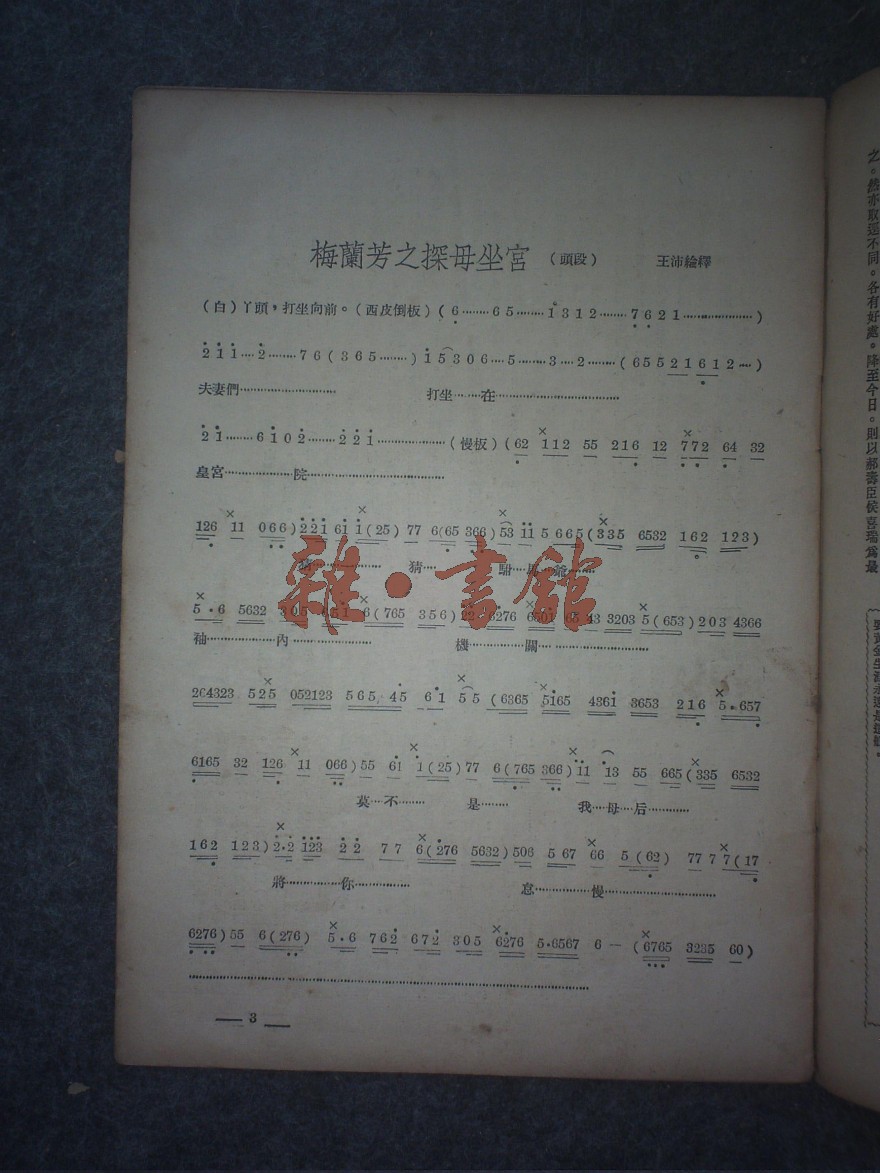 梅蘭芳之探母坐宮 （頭段） 王沛綸繹
（白）丫頭，打坐向前。（西皮倒板）（6……65……1312……7621………………）
211…2……76（365……）15306…5……3…2……（65521612…）
夫妻們………………………… 打坐……在……………………………
21……6102……221………………（慢板）（62 112 55 216 12 772 64 32
皇宮………………院…………………………………
126 11 066）221 611（25）77 6（65 366）53 11 5665（335 6532 162 123）
猜…
5·6 5632 305 6（765 356）43 3203 5（653）203 4366
袖…………………內…………………… 機……………關…………………………
264323 525 052123 565 45 61 55（6365 5165 4361 3653 216 5·657
6165 32 126 11 066）55 61 1（25）77 6（765 366）11 13 55 665（335 6532
莫…不…… 是…… 我…母…后………
162 123）2·2 123 22 77 6（276 5632）506 567 66 5（62）77 77（17
將……………你…………… 怠……………慢…………………………
6276）55 6（276）5·6 762 672 305 6276 5·6567 6—（6765 3235 60）
3
之。然亦取逕不同。各有好處。降至今日。則以郝壽臣侯喜瑞爲最
雜·書館